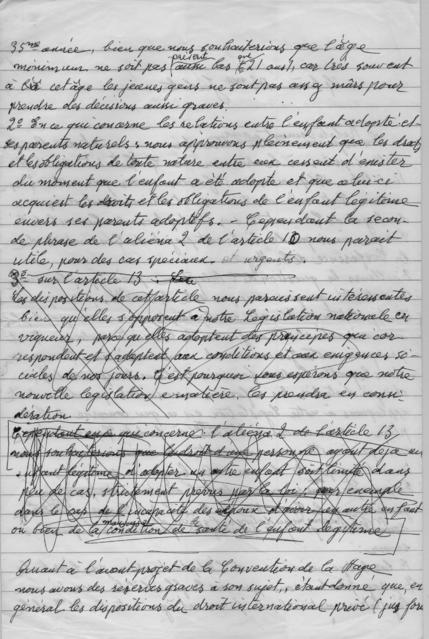 35me année, bien que nous souhaiterions que l'âge
minimum ne soit pas présent aussi bas que (21 ans), car très souvent
à cet âge les jeunes gens ne sont pas assez mûrs pour
prendre des décisions aussi graves.
2º En ce qui concerne les relations entre l'enfant adopté et
ses parents naturels, nous approuvons pleinement que les droits
et les obligations de toute nature entre eux cessent d'exister
du moment que l'enfant a été adopté et que celui-ci
acquiert les droits et les obligations de l'enfant légitime
envers ses parents adoptifs. - Cependant la secon-
de phrase de l'aliéna 2 de l'article 10 nous parait
utile, pour des cas spéciaux et urgents.
3º sur l'article 13.
Les dispositions de cet article nous paraissent intéressantes
bien qu'elles s'opposent à notre législation nationale en
vigueur, parce qu'elles adoptent des principes qui cor-
respondent et s'adaptent aux conditions et aux exigences so-
ciales de nos jours. C'est pourquoi nous espérons que notre
nouvelle législation en matière, les prendra en consi-
dération.
Cependant en ce que concerne l'aliéna 2 de l'article 13
nous souhaiterions que le droit d'une personne ayant déja un
enfant légitime d'adopter un autre enfant soit limité dans
peu de cas, strictement prévus par la loi: pour exemple
dans le cas de l'incapacité des époux d'avoir un autre enfant
ou bien de la mauvaise condition de santé de l'enfant légitime
Quant à l'avant projet de la Convention de la Haye
nous avons des réserves graves à son sujet, étant donné que en
général les dispositions du droit international privé (jus fori